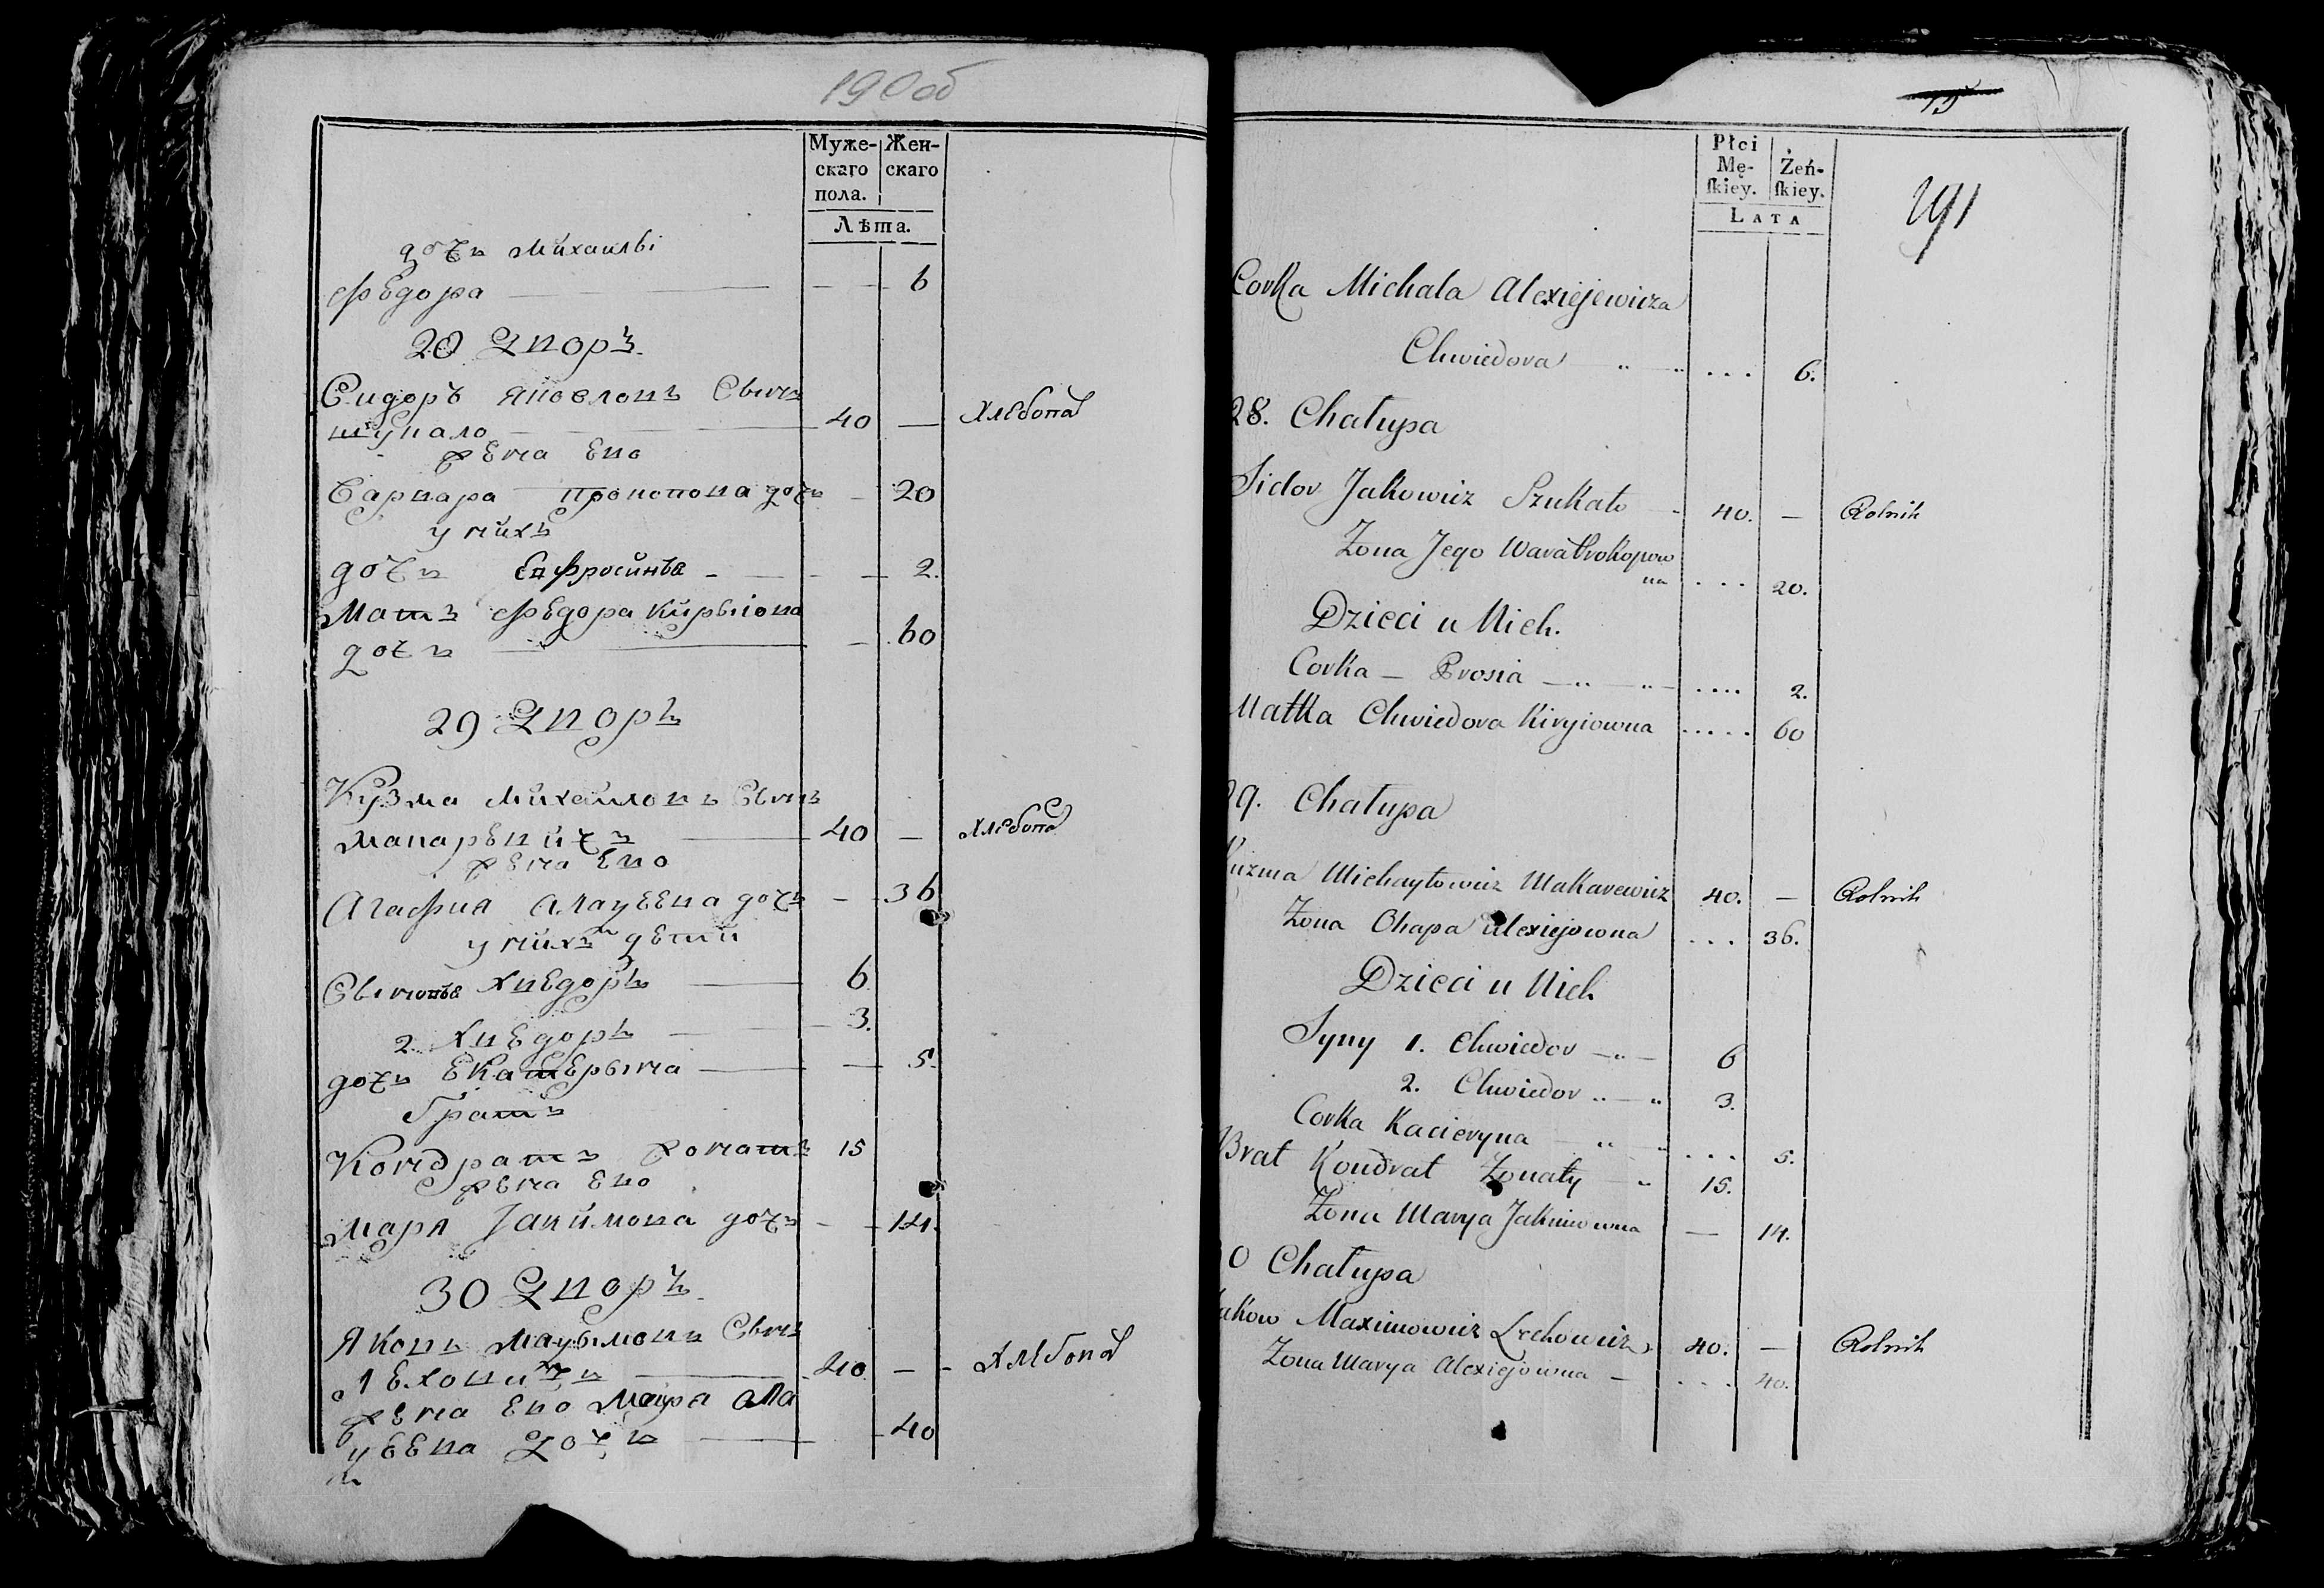 190об
Муже-
скаго
пола.
Жен-
скаго
Лѣта.
дочъ Михаилы
Федора 6
28 Дворъ
Сидоръ Яковловъ Сынъ
шукало 40 — Хлебопа
жена Его
Варвара Прокопова дочъ 20
у нихъ
дочъ Ефросинъа 2.
Матъ Федора Кирыіова
дочъ 60
29 Дворъ
Кузма Михаиловъ Сынъ
Макаревичъ 40 — Хлебопа
жена Его
Агафия Алаѯеева дочъ 36
у нихъ дети
Сыновъа Хведоръ 6
2 Хведоръ 3.
дочъ Екатерына 5.
Братъ
Кондратъ жонатъ 15
жена Его
Маря Іакимова дочъ 14.
30 Дворъ
Яковъ Маѯымовъ Сынъ
Леховичъ 40 — Хлебопа
жена Его Маря Ала
ѯеева Дочъ 40
15
191
Płci
Mę-
ſkiey.
Żeń-
ſkiey.
LATA
Corka Michala Alexiejewicza
Chwiedora 6.
28. Chałupa
Sidor Jakowicz Szukało 40. — Rolnik
Zona Jego Wara Prokopow
na 20.
Dzieci u Nich.
Corka — Prosia 2.
Matka Chwiedora Kiryiowna 60
29. Chałupa
Kuzma Michayłowicz Makarewicz 40. — Rolnik
Zona Ohapa Alexiejowna 36.
Dzieci u Nich
Syny 1. Chwiedor 6
2. Chwiedor 3.
Corka Kacieryna 5.
Brat Kondrat Zonaty 15.
Zona Marya Jakimowna — 14.
30 Chałupa
Jakow Maximowicz Lechowicz 40. — Rolnik
Zona Marya Alexiejowna 40.